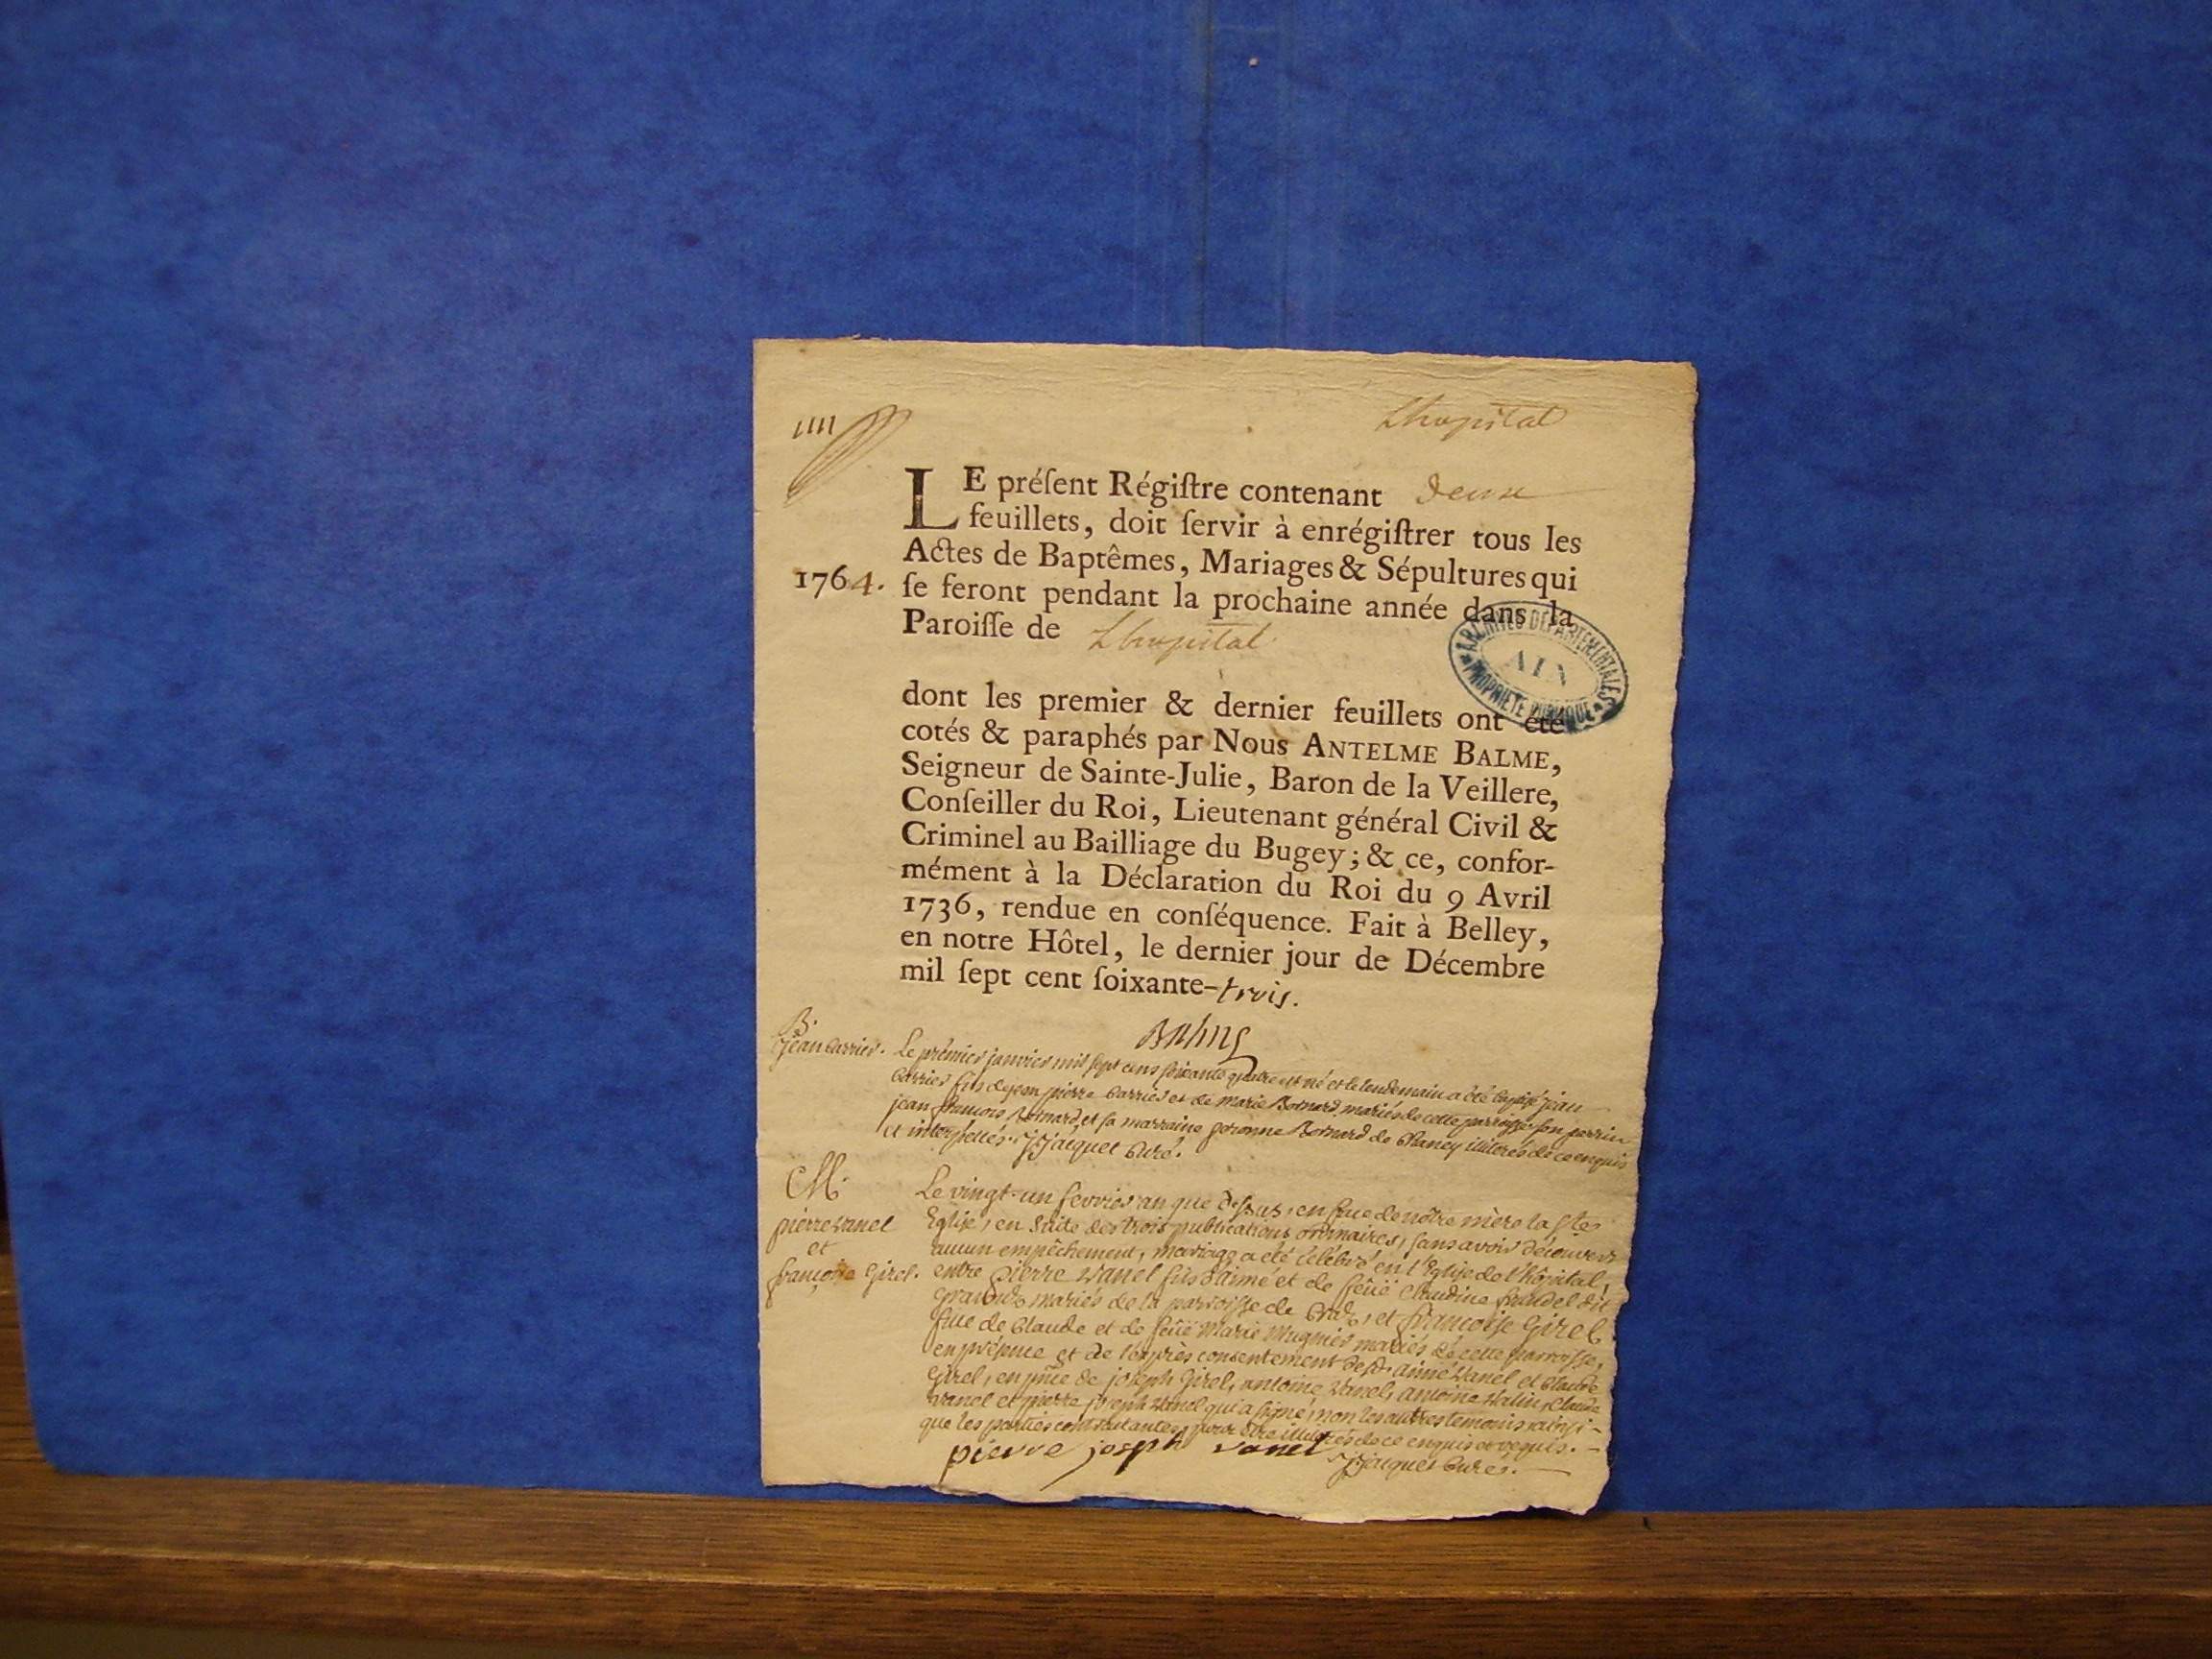 Lhopital
LE préſent Régiſtre contenant deux
feuillets, doit ſervir à enrégiſtrer tous les
Actes de Baptêmes, Mariages & Sépultures qui
1764. ſe feront pendant la prochaine année dans la
Paroiſſe de Lhopital
ARCHIVES DÉPARTEMENTALES
AIN
PROPRIÉTÉ PUBLIQUE
dont les premier & dernier feuillets ont été
cotés & paraphés par Nous ANTELME BALME,
Seigneur de Sainte-Julie, Baron de la Veillere,
Conſeiller du Roi, Lieutenant général Civil &
Criminel au Bailliage du Bugey; & ce, confor-
mément à la Déclaration du Roi du 9 Avril
1736, rendue en conſéquence. Fait à Belley,
en notre Hôtel, le dernier jour de Décembre
mil ſept cent ſoixante-trois.
Balme
B.
jean Carrier. Le prémier janvier mil sept cens soixante quatre est né et le lendemain a été baptisé jean
Carrier fils de jean pierre Carrier et de marie Bornard mariés de cette parroisse son parrin
jean françois Bornard et sa marraine Bornard de Chaney illiterés de ce enquis
et interpellés. jacquet Curé.
M.
pierre vanel
et
françoise Girel.
Le vingt-un fevrier an que dessus, en face de nôtre mère la Ste
Eglise, en suite des trois publications ordinaires, sans avoir découvert
aucun empêchement, mariage a été célébré en l'Eglise de l'hôpital,
entre pierre vanel fils d'aimé et de feüe Claudine dit
mariés de la parroisse de et françoise Girel
fille de Claude et de feüe Marie Mugnier mariés de cette parroisse,
en présence et de l'exprès consentement aimé vanel et Claude
Girel, en de joseph Girel, antoine vanel, antoine Claude
vanel et pierre joseph vanel qui a signé, non les autres temoins ainsi-
que les parties contractantes pour être illiterés de ce enquis et requis.-
pierre joseph vanel jacquet Curé.